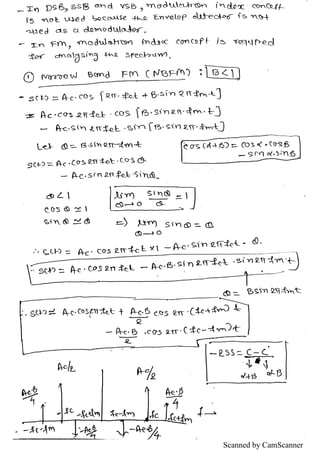 - In DSB, SSB and VSB, modulation index concept
is not used because the Envelop detector is not
used as a demodulator.
- In FM, modulation index concept is required
for analysing the spectrum.
① Narrow Band FM (NBFM) : B<1
- s(t) = Ac.cos [2π.fct + B.sin2π.fm.t]
= Ac.cos2πfct . cos [B.sin2π.fm.t]
- Ac.sin2πfct . sin [B.sin2π.fmt]
Let θ = B.sin2π.fmt
cos(A+B) = cosA.cosB
- sinA.sinB
s(t) = Ac.cos2πfct.cosθ
- Ac.sin2πfct sinθ
θ<1
lim θ→0 sinθ/θ = 1
cosθ ≃ 1
sinθ ≃ θ ⇒ lim θ→0 sinθ = θ
∴ s(t) = Ac.cos2πfct x1 - Ac.sin2πfct.θ.
s(t) = Ac.cos2πfct - Ac.B.sin2πfct.sin2πfmt
θ = Bsin2πfmt
∴ s(t) = Ac.cos2πfct + Ac.B/2 cos2π.(fc+fm)t
- Ac.B/2 .cos2π.(fc-fm)t
-2SS = C-C
α+B αB
Ac/2 Ac/2
AcB/4 Ac.B/4
-fc -fc+fm fc-fm fc fc+fm f→
-fc-fm -AcB/4 -AcB/4
Scanned by CamScanner